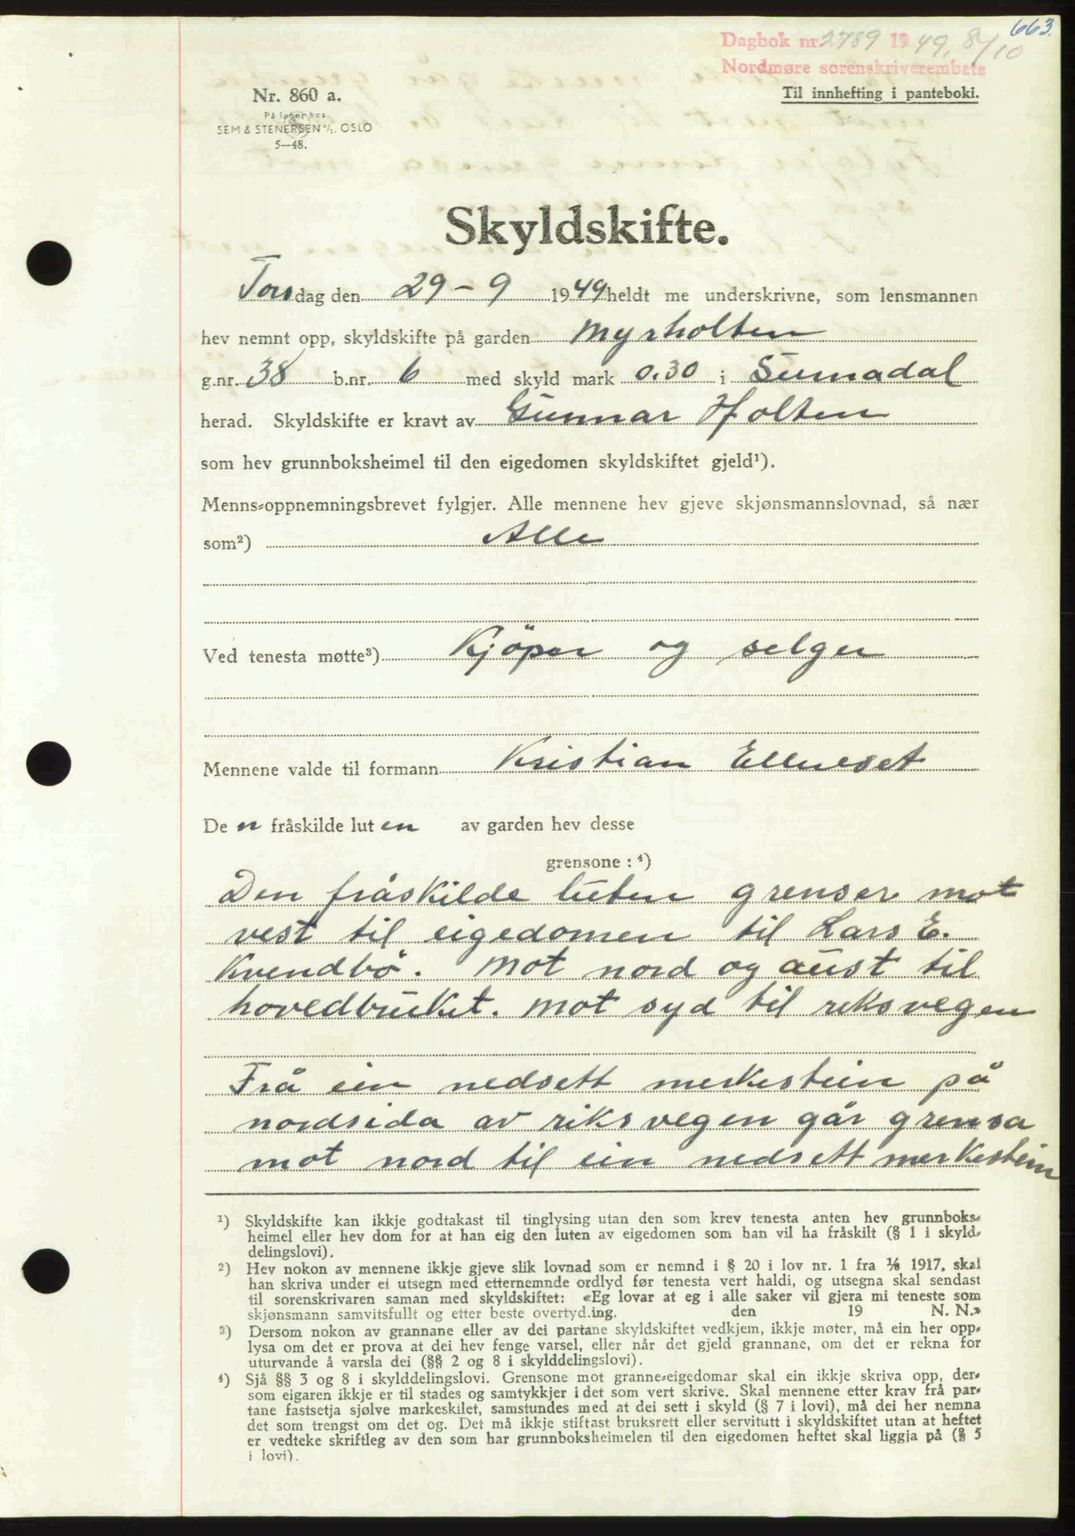 663.
Dagbok nr. 2789 1949, 8/10
Nordmøre sorenskriverembete
Til innhefting i panteboki.
Nr. 860 a.
På lager hos
SEM & STENERSEN A/S. OSLO
5—48.
Skyldskifte.
Torsdag den 29 - 9 1949 heldt me underskrivne, som lensmannen
hev nemnt opp, skyldskifte på garden Myrholten
g.nr. 38 b.nr. 6 med skyld mark 0.30 i Surnadal
herad. Skyldskifte er kravt av Gunnar Holten
som hev grunnboksheimel til den eigedomen skyldskiftet gjeld¹).
Menns-oppnemningsbrevet fylgjer. Alle mennene hev gjeve skjønsmannslovnad, så nær
som²) Alle
Ved tenesta møtte³) Kjöper og selger
Mennene valde til formann Kristian Ellevset
De n fråskilde lut en av garden hev desse
grensone : ⁴)
Den fråskilde luten grenser mot
vest til eigedomen til Lars E.
Kvendbö. Mot nord og aust til
hovedbruket. Mot syd til riksvegen
Frå ein nedsett merkestein på
nordsida av riksvegen går grensa
mot nord til ein nedsett merkestein
¹) Skyldskifte kan ikkje godtakast til tinglysing utan den som krev tenesta anten hev grunnboks-
heimel eller hev dom for at han eig den luten av eigedomen som han vil ha fråskilt (§ 1 i skyld-
delingslovi).
²) Hev nokon av mennene ikkje gjeve slik lovnad som er nemnd i § 20 i lov nr. 1 fra 1/6 1917, skal
han skriva under ei utsegn med etternemnde ordlyd før tenesta vert haldi, og utsegna skal sendast
til sorenskrivaren saman med skyldskiftet: «Eg lovar at eg i alle saker vil gjera mi teneste som
skjønsmann samvitsfullt og etter beste overtyding. den 19 N. N.»
³) Dersom nokon av grannane eller av dei partane skyldskiftet vedkjem, ikkje møter, må ein her opp-
lysa om det er prova at dei hev fenge varsel, eller når det gjeld grannane, om det er rekna for
uturvande å varsla dei (§§ 2 og 8 i skylddelingslovi).
⁴) Sjå §§ 3 og 8 i skylddelingslovi. Grensone mot granne-eigedomar skal ein ikkje skriva opp, der-
som eigaren ikkje er til stades og samtykkjer i det som vert skrive. Skal mennene etter krav frå par-
tane fastsetja sjølve markeskilet, samstundes med at dei sett i skyld (§ 7 i lovi), må dei her nemna
det som trengst om det og. Det må ikkje stiftast bruksrett eller servitutt i skyldskiftet utan at heftet
er vedteke skriftleg av den som har grunnboksheimelen til den eigedomen heftet skal liggja på (§ 5
i lovi).